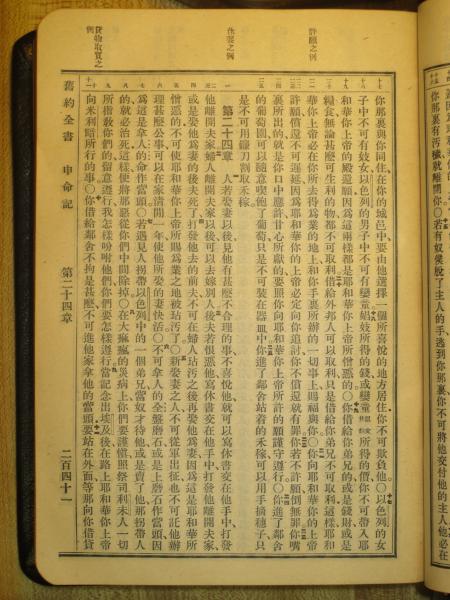 許願之例
休妻之例
貸物取質之例
你那裏與你同住在你的城邑中要由他選擇一個所喜悅的地方居住你不可欺負他〇以色列的女
子中不可有妓女以色列的男子中不可有孌童娼妓所得的錢或孌童所得的價你不可帶入耶
和華你上帝的殿還願因爲這兩樣都是耶和華你上帝所憎惡的〇你借給你弟兄的或是錢財或是
糧食無論甚麼可生利的物都不可取利借給外邦人可以取利只是借給你弟兄不可取利這樣耶和
華你上帝必在你所去得爲業的地上和你手裏所辦的一切事上賜福與你〇你向耶和華你的上帝
許願償還不可遲延因爲耶和華你的上帝必定向你追討你不償還就有罪你若不許願倒無罪你嘴
裏所出的就是你口中應許甘心所獻的要照你向耶和華你的上帝所許的願謹守遵行〇你進了鄰舍
的葡萄園可以隨意喫飽了葡萄只是不可裝在器皿中你進了鄰舍站着的禾稼可以用手摘穗子只
是不可用鐮刀割取禾稼
第二十四章 人若娶妻以後見他有甚麼不合理的事不喜悅他就可以寫休書交在他手中打發
他離開夫家婦人離開夫家以後可以去嫁別人後夫若恨惡他寫休書交在他手中打發他離開夫家
或是娶他爲妻的後夫死了打發他去的前夫不可在婦人玷污之後再娶他爲妻因爲這是耶和華所
憎惡的不可使耶和華你上帝所賜爲業之地被玷污了〇新娶妻之人不可從軍出征也不可託他辦
理甚麼公事可以在家清閒一年使他所娶的妻快活〇不可拿人的全盤磨石或是上磨石作當頭因
爲這是拿人的命作當頭〇若遇見人拐帶以色列中的一個弟兄當奴才待他或是賣了他那拐帶人
的就必治死這樣便將那惡從你們中間除掉〇在大痲瘋的災病上你們要謹愼照祭司利未人一切
所指敎你們的留意遵行我怎樣吩咐他們你們要怎樣遵行當記念出埃及後在路上耶和華你上帝
向米利暗所行的事〇你借給鄰舍不拘是甚麼不可進他家拿他的當頭要站在外面等那向你借貸
舊約全書 申命記 第二十四章 二百四十一
你那裏有污穢就離開你〇若有奴僕脫了主人的手逃到你那裏你不可將他交付他的主人他必在